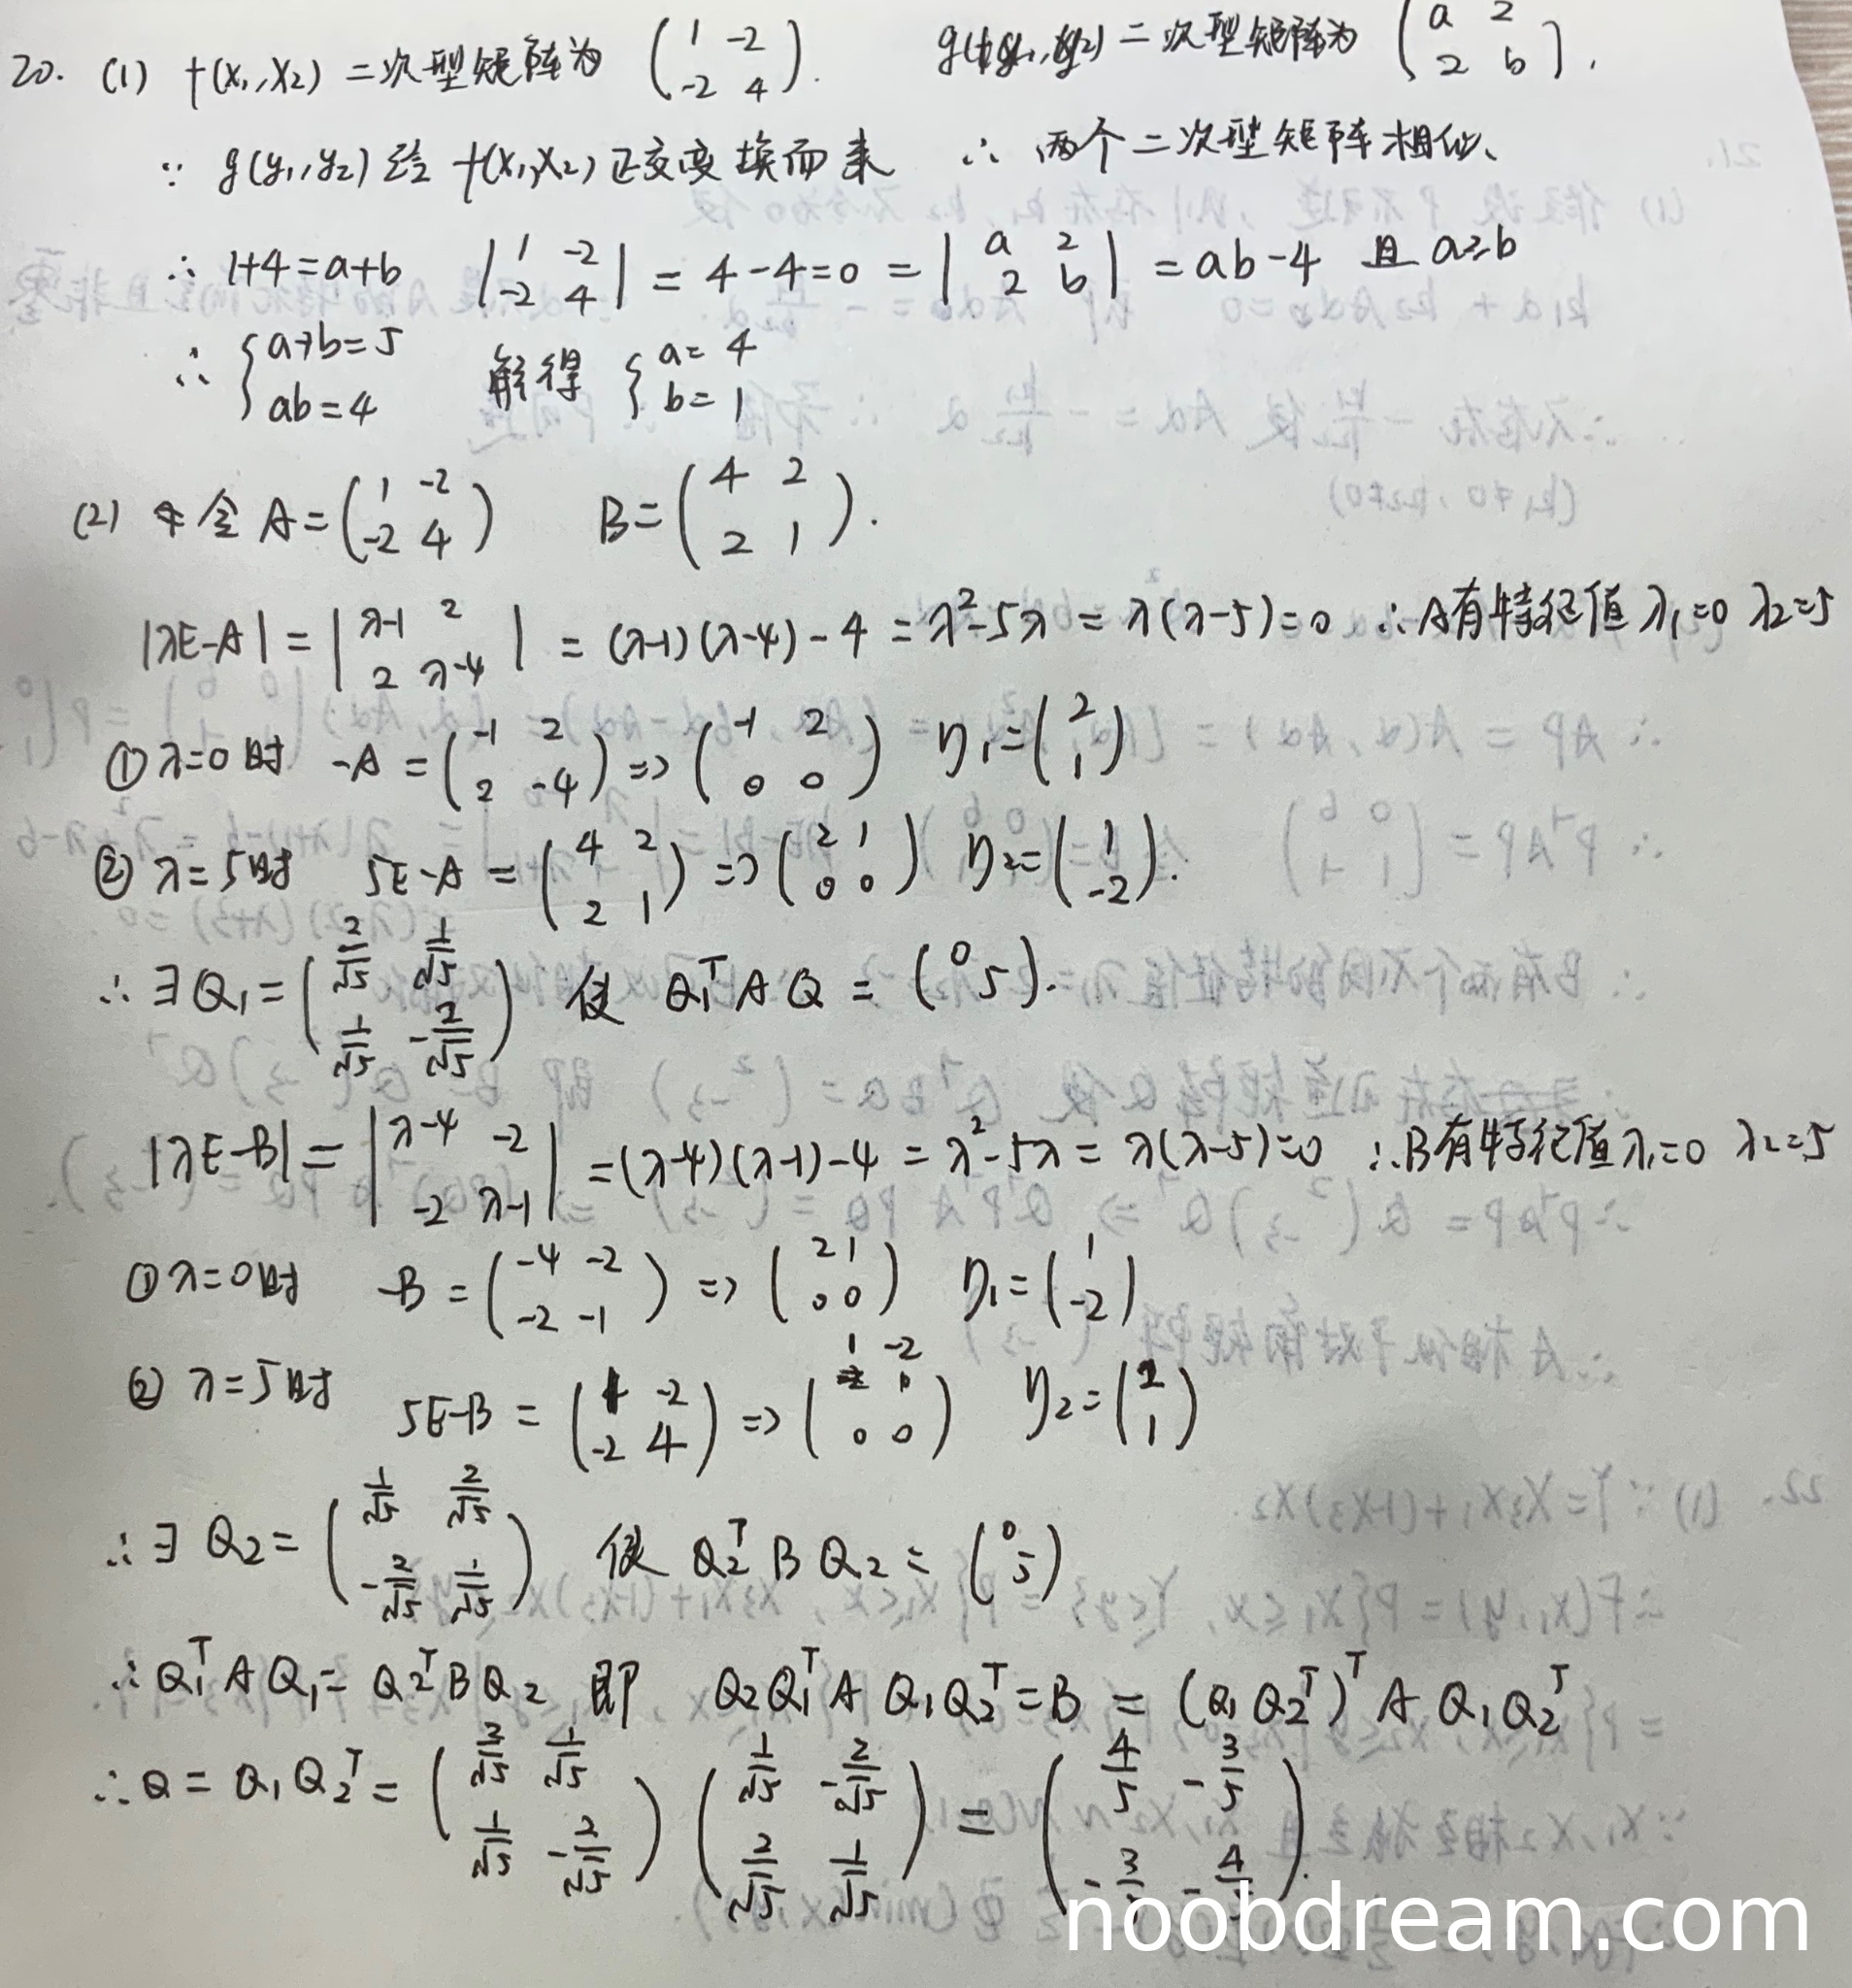 20. (1) f(x₁,x₂) 二次型矩阵为 (1 -2; -2 4). g(y₁,y₂) 二次型矩阵为 (a 2; 2 b).
∵ g(y₁,y₂) 经 f(x₁,x₂) 正交变换而来 ∴ 两个二次型矩阵相似、
∴ 1+4=a+b |1 -2; -2 4| = 4-4=0 = |a 2; 2 b| = ab-4 且 a≥b
∴ {a+b=5; ab=4 解得 {a=4; b=1
(2) 令 A=(1 -2; -2 4) B=(4 2; 2 1).
|λE-A| = |λ-1 2; 2 λ-4| = (λ-1)(λ-4)-4 = λ²-5λ = λ(λ-5)=0 ∴A有特征值 λ₁=0 λ₂=5
① λ=0时 -A = (-1 2; 2 -4) => (-1 2; 0 0) η₁=(2; 1)
② λ=5时 5E-A = (4 2; 2 1) => (2 1; 0 0) η₂=(1; -2).
∴ ∃Q₁=(2/√5 1/√5; 1/√5 -2/√5) 使 Q₁ᵀAQ = (0 5).
|λE-B| = |λ-4 -2; -2 λ-1| = (λ-4)(λ-1)-4 = λ²-5λ = λ(λ-5)=0 ∴B有特征值λ₁=0 λ₂=5
① λ=0时 -B = (-4 -2; -2 -1) => (2 1; 0 0) η₁=(1; -2)
② λ=5时 5E-B = (1 -2; -2 4) => (1 -2; 0 0) η₂=(2; 1)
∴∃ Q₂=(1/√5 2/√5; -2/√5 1/√5) 使 Q₂ᵀBQ₂ = (0 5)
∴Q₁ᵀAQ₁= Q₂ᵀBQ₂ 即 Q₂Q₁ᵀAQ₁Q₂ᵀ=B = (Q₁Q₂ᵀ)ᵀAQ₁Q₂ᵀ
∴Q = Q₁Q₂ᵀ= (2/√5 1/√5; 1/√5 -2/√5)(1/√5 -2/√5; 2/√5 1/√5) = (4/5 -3/5; -3/5 -4/5).
noobdream.com